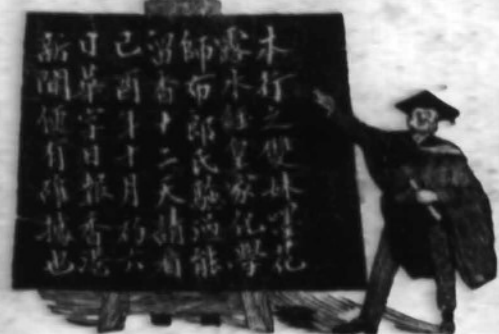 本行之雙妹嘜花
露水經皇家化學
師布郎氏驗滿能
留香十二天請看
己酉年十月初六
日華字日報香港
新聞便有確據也